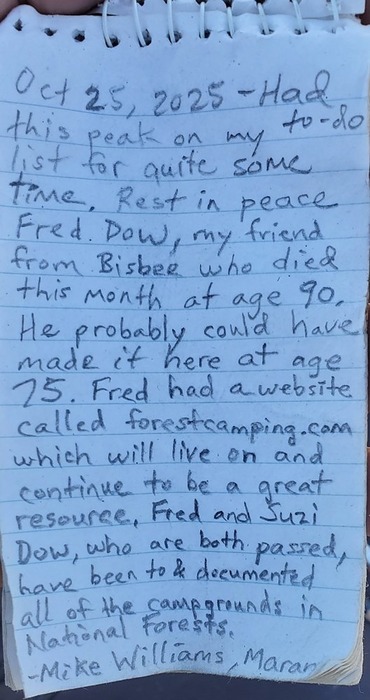 Oct 25, 2025 - Had
this peak on my to-do
list for quite some
time. Rest in peace
Fred. Dow, my friend
from Bisbee who died
this month at age 90.
He probably could have
made it here at age
75. Fred had a website
called forestcamping.com
which will live on and
continue to be a great
resource. Fred and Suzi
Dow, who are both passed,
have been to & documented
all of the campgrounds in
National Forests.
-Mike Williams, Maran